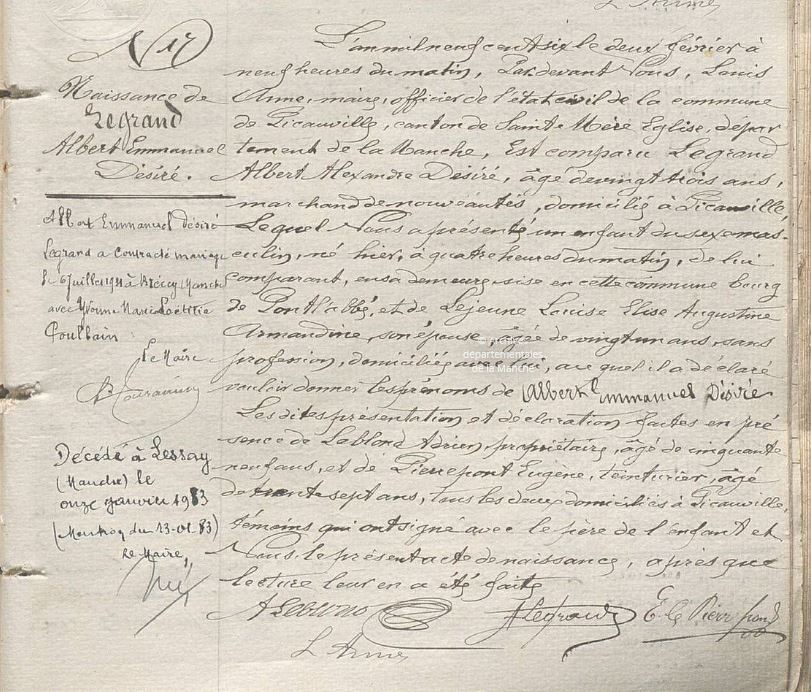 L. Anne
N 17
Naissance de
Legrand
Albert Emmanuel
Désiré.
Albert Emmanuel Désiré
Legrand a contracté mariage
le 6 juillet à (Manche)
avec Yvonne Marie Laëtitia
Poullain
Le Maire
Décédé à Lessay
(Manche) le
onze janvier 1983
(Mention du 13-01 83)
Le Maire,
L'an mil neuf cent six le deux février à
neuf heures du matin, Par devant Nous, Louis
Anne, maire, officier de l'état civil de la commune
de Picauville, canton de Sainte Mère Eglise, dépar
tement de la Manche, Est comparu Legrand
Albert Alexandre Désiré, âgé de vingt trois ans,
marchand de nouveautés, domicilié à Picauville,
Lequel Nous a présenté un enfant du sexe mas-
culin, né hier, à quatre heures du matin, de lui
comparant, en sa demeure sise en cette commune bourg
de Pont l'abbé, et de Lejeune Louise Elise Augustine
Armandine, son épouse, âgée de vingt un ans, sans
profession, domiciliée avec lui, au quel il a déclaré
vouloir donner les prénoms de Albert Emmanuel Désiré
Les dites présentation et déclaration faites en pré
sence de Leblond Adrien, propriétaire, âgé de cinquante
neuf ans, et de Pierrepont Eugène, teinturier, âgé
de trente sept ans, tous les deux domiciliés à Picauville,
témoins qui ont signé avec le père de l'enfant et
Nous le présent acte de naissance, après que
lecture leur en a été faite
A Leblond
A Legrand
E. Pierrepont
L. Anne
© Archives
départementales
de la Manche